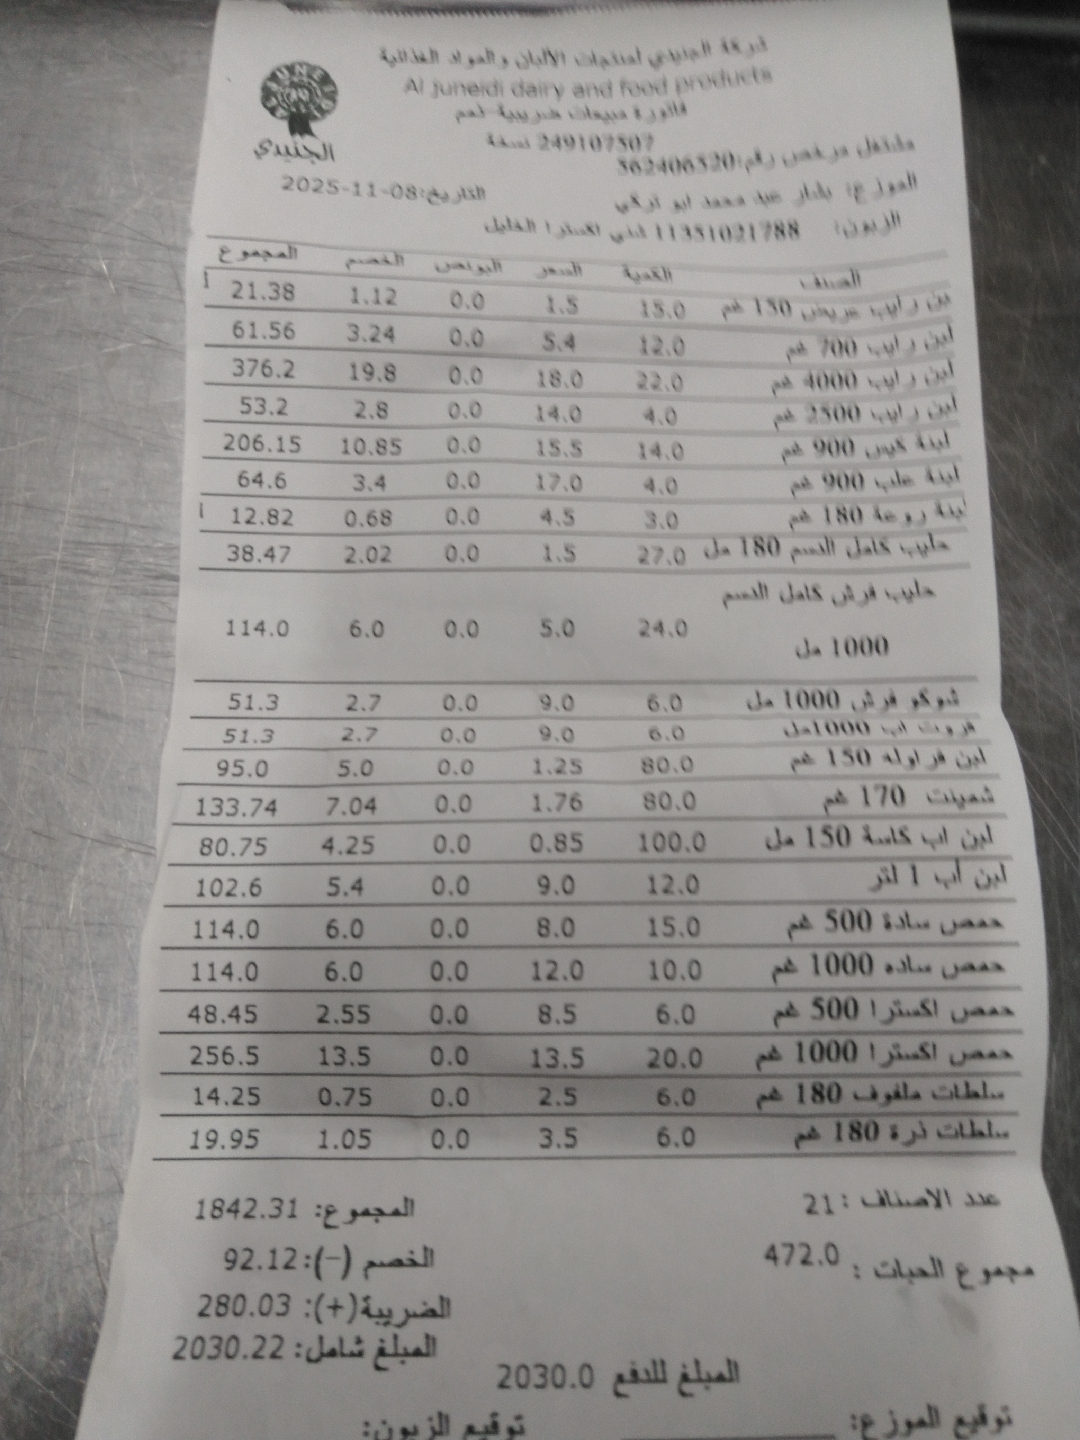 شركة الجنيدي لمنتجات الألبان والمواد الغذائية
Al Juneidi dairy and food products
فاتورة مبيعات ضريبية-ذمم
249107507 نسخة
الجنيدي
مشتغل مرخص رقم:562406520
التاريخ:2025-11-08
الموزع: بلدار عبد محمد ابو تركي
الزبون: 11351021788 اكسترا الخليل
الصنف الكمية السعر البونص الخصم المجموع
لبن رايب عريض 150 غم 15.0 1.5 0.0 1.12 21.38
لبن رايب 700 غم 12.0 5.4 0.0 3.24 61.56
لبن رايب 4000 غم 22.0 18.0 0.0 19.8 376.2
لبن رايب 2500 غم 4.0 14.0 0.0 2.8 53.2
لبنة كيس 900 غم 14.0 15.5 0.0 10.85 206.15
لبنة علب 900 غم 4.0 17.0 0.0 3.4 64.6
لبنة روعة 180 غم 3.0 4.5 0.0 0.68 12.82
حليب كامل الدسم 180 مل 27.0 1.5 0.0 2.02 38.47
حليب فرش كامل الدسم
1000 مل 24.0 5.0 0.0 6.0 114.0
شوكو فرش 1000 مل 6.0 9.0 0.0 2.7 51.3
فروت اب 1000مل 6.0 9.0 0.0 2.7 51.3
لبن فراوله 150 غم 80.0 1.25 0.0 5.0 95.0
شمينت 170 غم 80.0 1.76 0.0 7.04 133.74
لبن اب كاسة 150 مل 100.0 0.85 0.0 4.25 80.75
لبن أب 1 لتر 12.0 9.0 0.0 5.4 102.6
حمص سادة 500 غم 15.0 8.0 0.0 6.0 114.0
حمص ساده 1000 غم 10.0 12.0 0.0 6.0 114.0
حمص اكسترا 500 غم 6.0 8.5 0.0 2.55 48.45
حمص اكسترا 1000 غم 20.0 13.5 0.0 13.5 256.5
سلطات ملفوف 180 غم 6.0 2.5 0.0 0.75 14.25
سلطات ذرة 180 غم 6.0 3.5 0.0 1.05 19.95
عدد الاصناف : 21 المجموع: 1842.31
مجموع الحبات : 472.0 الخصم (-): 92.12
الضريبة(+): 280.03
المبلغ شامل: 2030.22
المبلغ للدفع 2030.0
توقيع الموزع: توقيع الزبون: